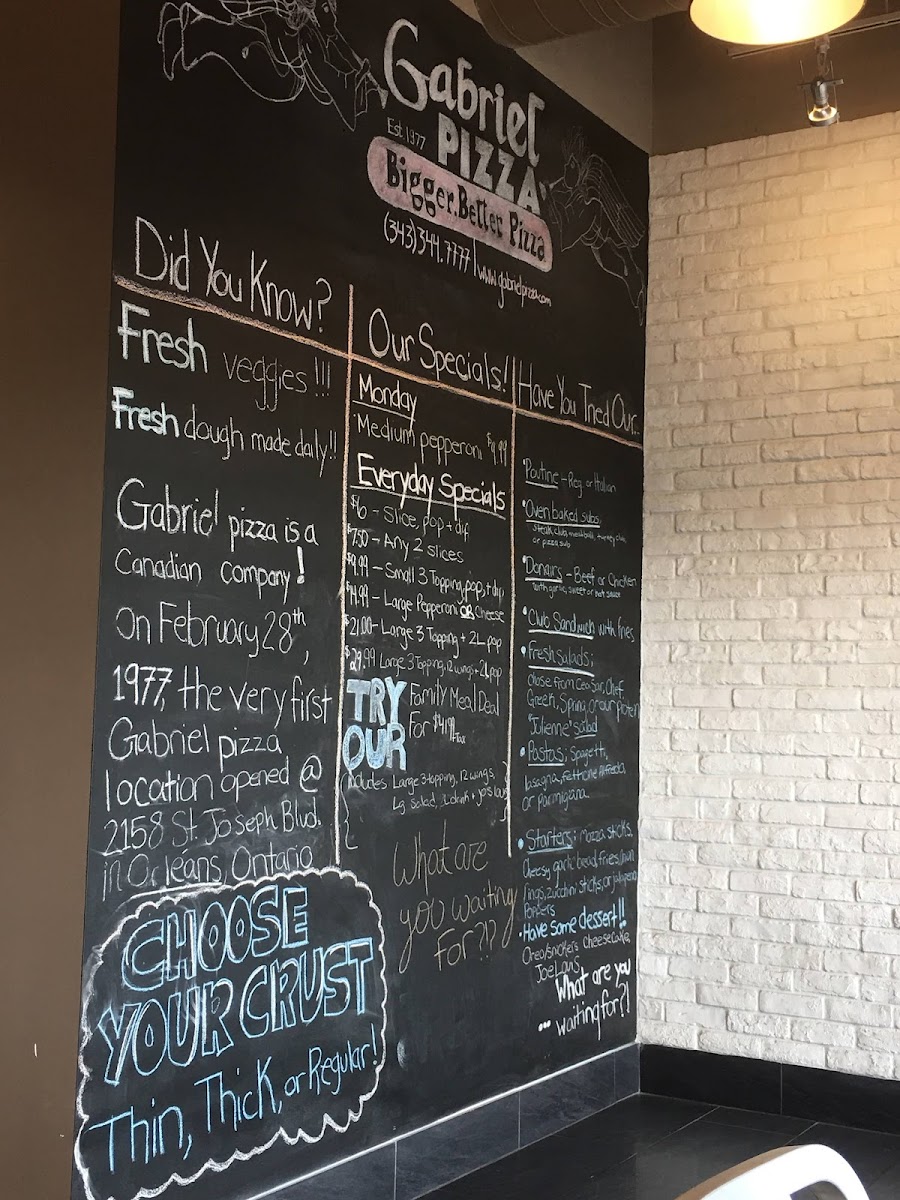 Gabriel
Est 1977
PIZZA
Bigger. Better Pizza
(343) 344.7777 | www.gabrielpizza.com
Did You Know?
Fresh veggies !!!
Fresh dough made daily!!
Gabriel pizza is a
Canadian company!
On February 28th,
1977, the very first
Gabriel pizza
location opened @
2158 St. Joseph Blvd.
in Orleans, Ontario
CHOOSE
YOUR CRUST
Thin, Thick, or Regular!
Our Specials!
Monday
Medium pepperoni
Everyday Specials
$6 - Slice, pop + dip
$7.50 - Any 2 slices
$9.99 - Small 3 Topping, pop, + dip
$14.99 - Large Pepperoni OR Cheese
$21.00 - Large 3 Topping + 2L pop
$29.99 Large 3 Topping, 12 wings + 2L pop
TRY
OUR
Family Meal Deal
For $41.99
+Tax
Includes Large 3 topping, 12 wings,
Lg salad, 2L drink +
What are
you waiting
For?!?
Have You Tried Our...
• Poutine - Reg. or Italian
• Oven baked subs;
steak club, meatball, turkey club
or pizza sub
• Donairs - Beef or Chicken
with garlic, sweet or hot sauce
• Club Sandwich with fries
• Fresh Salads;
chose from Ceasar, Chef,
Greek, Spring, or our
"Julienne" salad
• Pastas; Spagetti,
lasagna, Fettucine Alfredo,
or Parmigiana
• Starters; Mozza sticks,
Cheesy garlic bread, fries, onion
rings, zucchini sticks, or jalapeno
Poppers
• Have some dessert!!
Oreo/snickers cheesecake,
Joe Louis
...What are you
waiting for?!